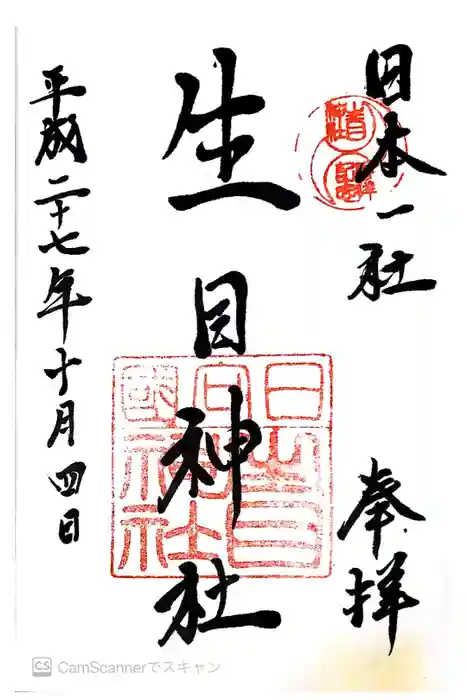 日本一社
奉拝
生目神社
日向国生目神社
平成二十七年十月四日
CS CamScannerでスキャン